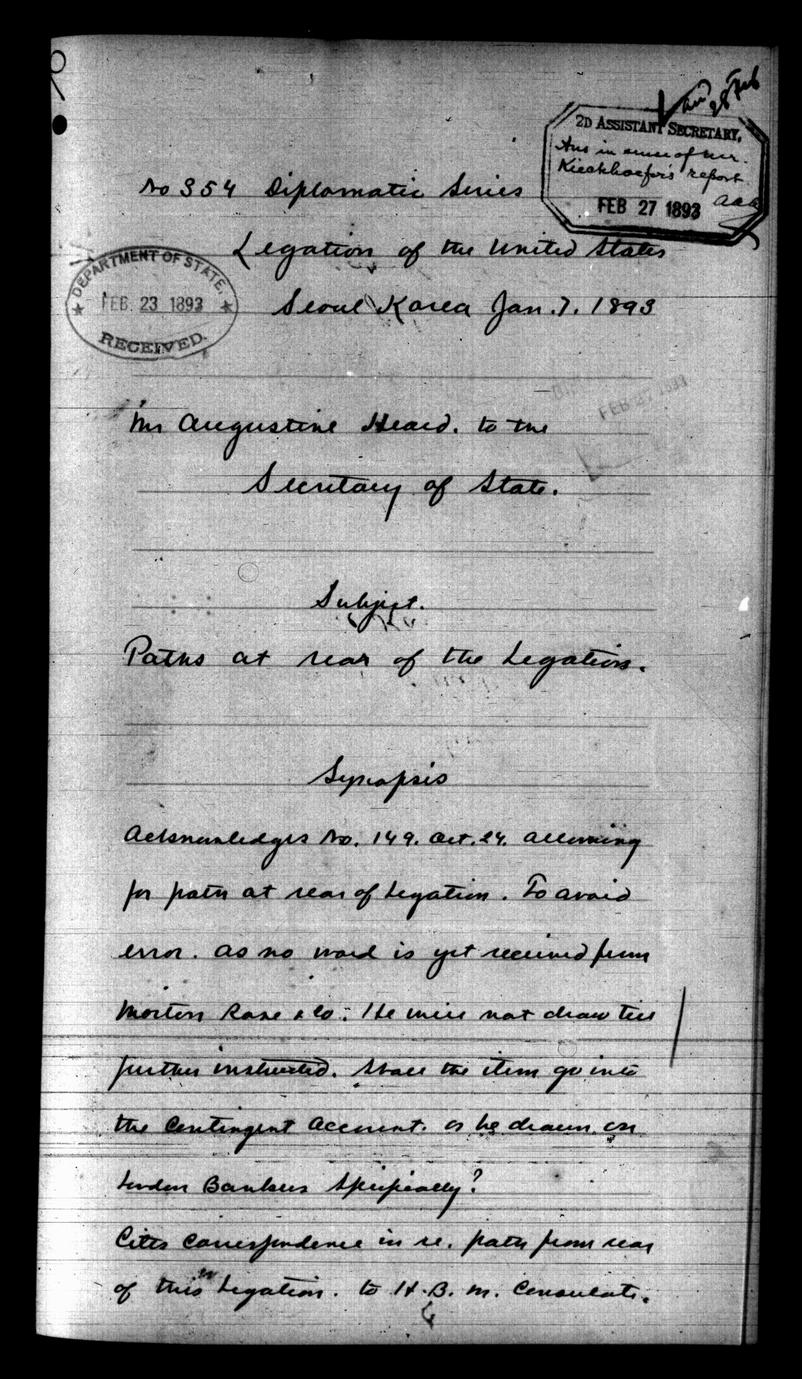 28 Feb
2D ASSISTANT SECRETARY,
Ans in sense of Mr.
Kieckhoefer's report
FEB 27 1893 aaa
No 354 Diplomatic Series
Legation of the United States
DEPARTMENT OF STATE,
FEB. 23 1893
RECEIVED.
Seoul Korea Jan. 7. 1893
FEB 27 1893
Mr Augustine Heard. to the
Secretary of State.
Subject.
Paths at rear of the Legation.
Synopsis
Acknowledges No. 149. Oct. 24. allowing
for path at rear of Legation. To avoid
error. as no word is yet received from
Morton Rose & Co. He will not draw till
further instructed. Shall the item go into
the Contingent Account. or be drawn on
London Bankers specifically?
Cites Correspondence in re. path from rear
of this Legation. to H.B.M. Consulate.